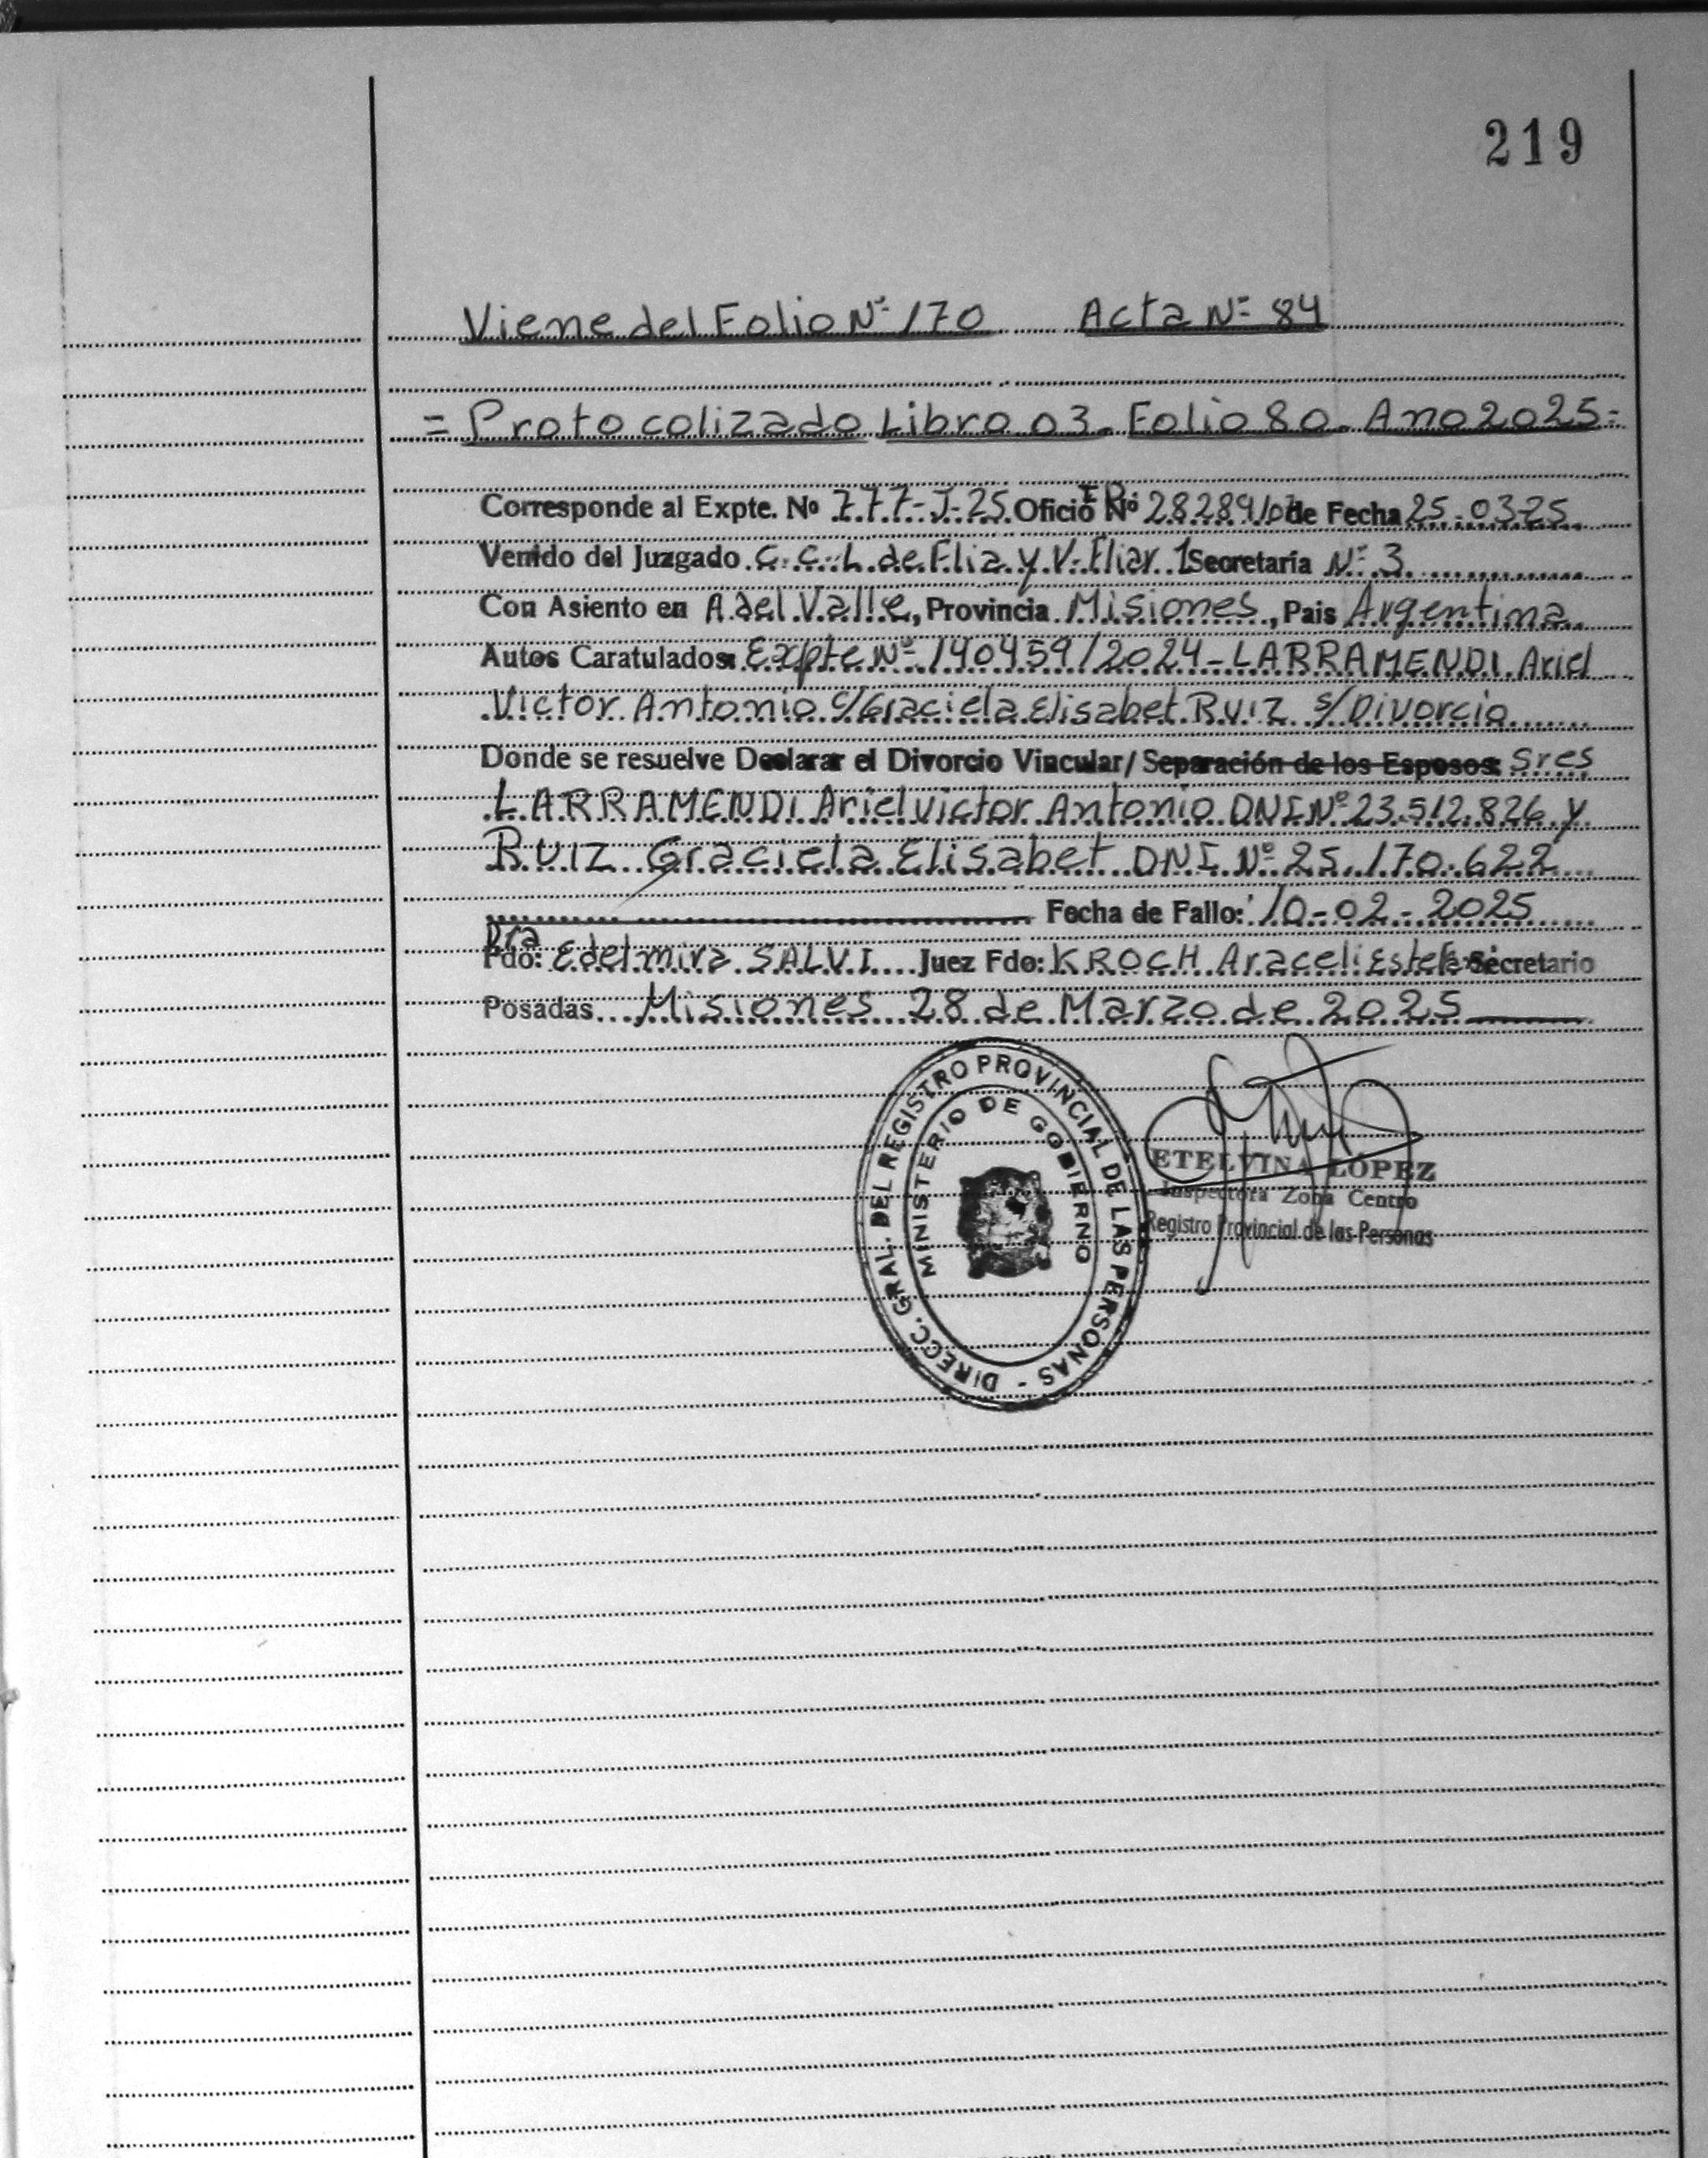 219
Viene del Folio Nº 170 Acta Nº 84
= Protocolizado Libro 03. Folio 80. Ano 2025=
Corresponde al Expte. Nº 777-J-25 Oficio Nº de Fecha 25-03-25
Venido del Juzgado C.C.L. de Flia y V. Fliar 1 Secretaría Nº 3
Con Asiento en A. del Valle, Provincia Misiones, Pais Argentina
Autos Caratulados: Expte Nº 140459/2024 - LARRAMENDI Ariel
Victor Antonio c/Graciela Elisabet RUIZ s/ Divorcio
Donde se resuelve Declarar el Divorcio Vincular/ Separación de los Esposos: Sres
LARRAMENDI Ariel Victor Antonio DNI Nº 23.512.826 y
RUIZ Graciela Elisabet DNI Nº 25.170.622
Fecha de Fallo: 10-02-2025
Dra
Fdo: Edelmira SALVI Juez Fdo: KROCH Araceli Estela Secretario
Posadas Misiones 28 de Marzo de 2025
DIRECC. GRAL. DEL REGISTRO PROVINCIAL DE LAS PERSONAS -
MINISTERIO DE GOBIERNO
ETELVINA LÓPEZ
Inspectora Zona Centro
Registro Provincial de las Personas